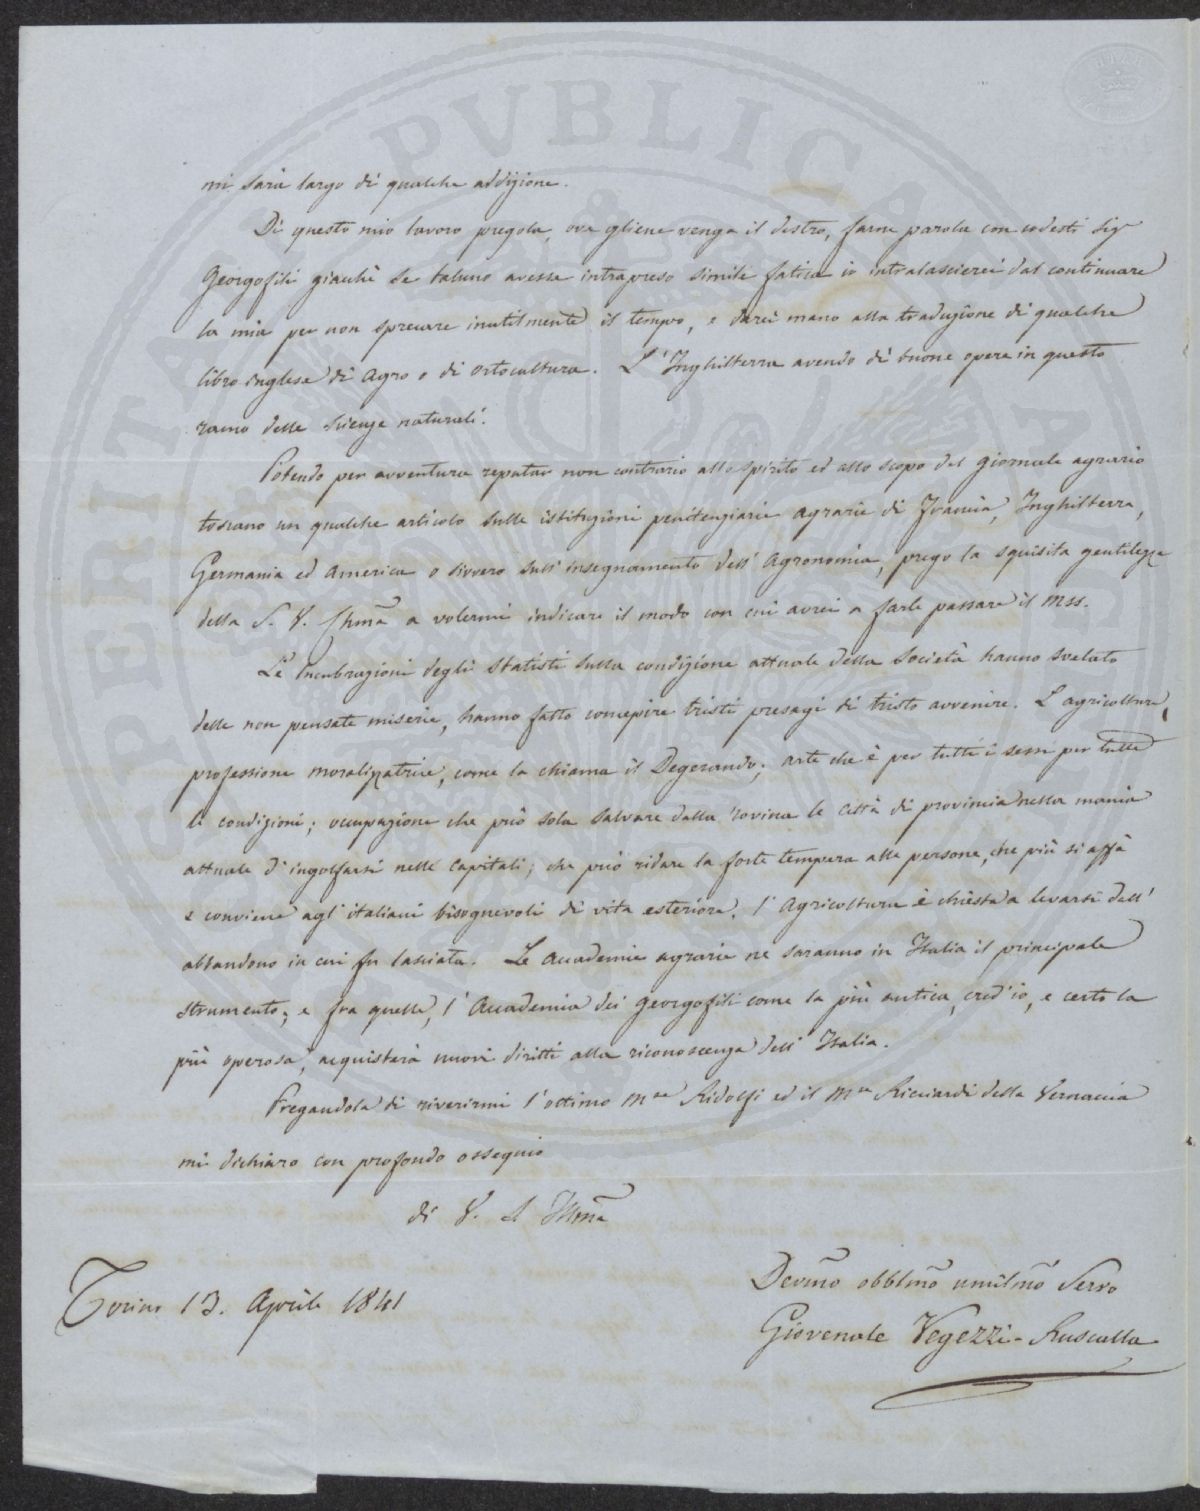 mi sarà largo di qualche addizione.
Di questo mio lavoro pregola, ove gliene venga il destro, farne parola con codesti Sigri
Georgofili giacchè se taluno avesse intrapreso simile fatica io intralascierei dal continuare
la mia per non sprecare inutilmente il tempo, e darei mano alla traduzione di qualche
libro inglese di agro o di ortocultura. L'Inghilterra avendo di buone opere in questo
ramo delle scienze naturali.
Potendo per avventura reputar non contrario allo spirito ed allo scopo del giornale agrario
toscano un qualche articolo sulle istituzioni penitenziarie agrarie di Francia, Inghilterra,
Germania ed America o sivvero sull'insegnamento dell'Agronomia, prego la squisita gentilezza
della S. V. Chma a volermi indicare il modo con cui avrei a farle passare il Mss.
Le lucubrazioni degli statisti sulla condizione attuale della Società hanno svelato
delle non pensate miserie, hanno fatto concepire tristi presagi di tristo avvenire. L'agricoltura,
professione moralizzatrice, come la chiama il Degerando; arte che è per tutti i sessi per tutte
le condizioni; occupazione che può sola salvare dalla rovina le città di provincia nella mania
attuale d'ingolfarsi nelle Capitali; che può ridare la forte tempera alle persone, che più si affà
e conviene agl'italiani bisognevoli di vita esteriore. l'Agricoltura è chiesta a levarsi dall'
abbandono in cui fu lasciata. Le accademie agrarie ne saranno in Italia il principale
strumento; e fra quelle, l'Accademia dei georgofili come la più antica, cred'io, e certo la
più operosa, acquisterà nuovi diritti alla riconoscenza dell'Italia.
Pregandola di riverirmi l'ottimo Mse Ridolfi ed il Mse Ricciardi della Vernaccia
mi dichiaro con profondo ossequio
di V. S Illma
Devmo obblmo umilmo Servo
Torino 13. Aprile 1841
Giovenale Vegezzi-Ruscalla
PUBLICA